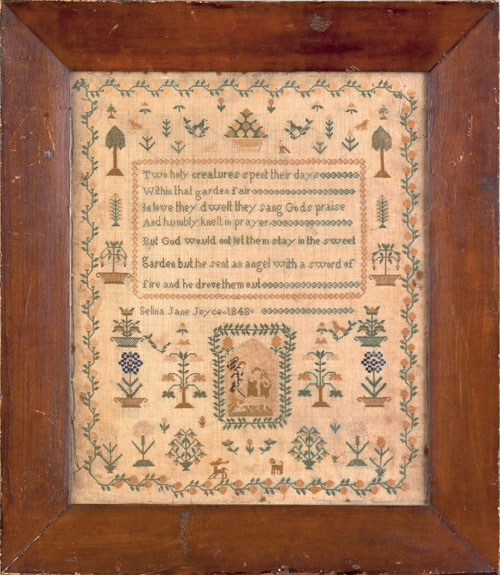 Two holy creatures spent their days
Within that garden fair
In love they dwelt they sang Gods praise
And humbly knelt in prayer
But God would not let them stay in the sweet
Garden but he sent an angel with a sword of
fire and he drove them out
Selina Jane Joyce 1848